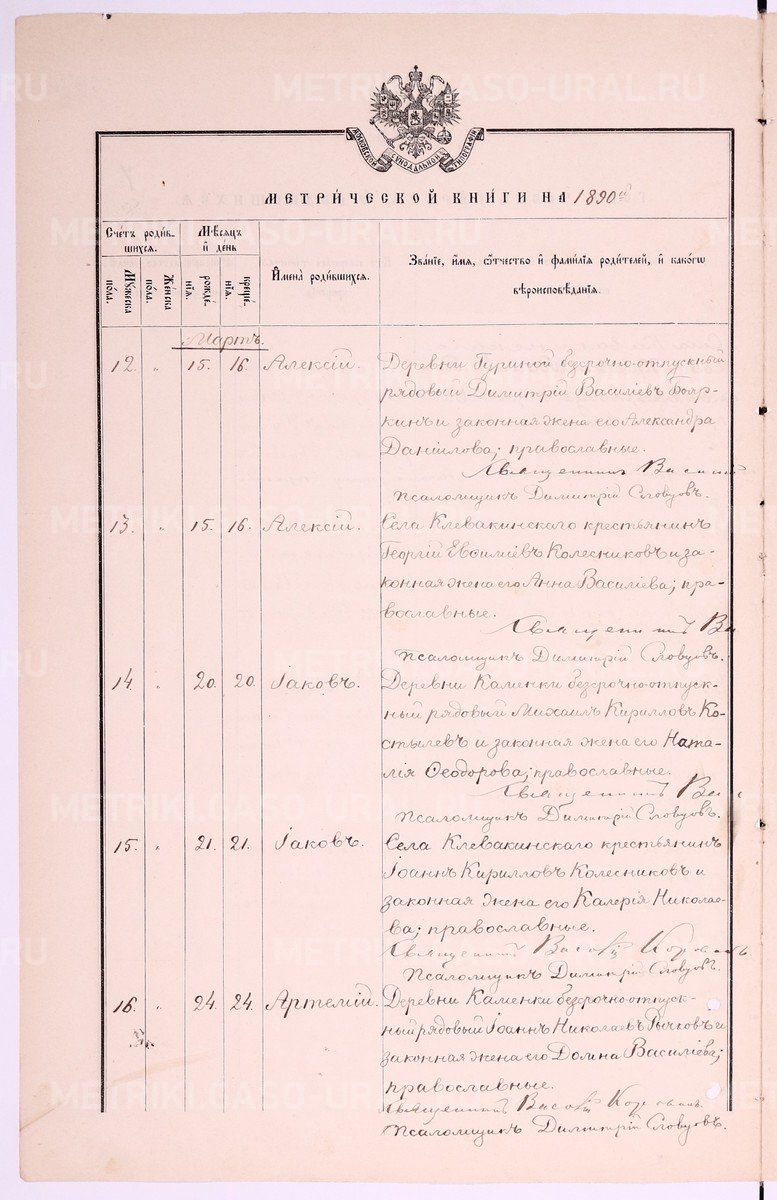 МЕТРИ́ЧЕСКОЙ КНИ́ГИ НА 1890й
Сче́тъ роди́в-
шихся.
Мѣсяцъ
и҆ день
И҆мена̀ роди́вшихся.
Зва́нїе, и҆́мя, ѻ҆́тчество и҆ фами́лїа роди́телей, и҆ како́гѡ
вѣроисповѣ́данїя.
Му́жеска по́ла.
Же́нска по́ла.
рожде́нїя.
креще́нїя.
Мартъ.
12. " 15. 16. Алексій. Деревни Гуриной безсрочно-отпускный
рядовый Димитрій Василіевъ Бояр-
кинъ и законная жена его Александра
Даніилова; православные.
Священникъ
Псаломщикъ Димитрій Словцовъ.
13. " 15. 16. Алексій. Села Клевакинскаго крестьянинъ
Георгій Евѳиміевъ Колесниковъ и за-
конная жена его Анна Василіева; пра-
вославные.
Священникъ Ва
Псаломщикъ Димитрій Словцовъ.
14. " 20. 20. Іаковъ. Деревни Каменки безсрочно-отпуск-
ный рядовый Михаилъ Кирилловъ Ко-
стылевъ и законная жена его Ната-
лія Ѳеодорова; православные.
Священникъ
Псаломщикъ Димитрій Словцовъ.
15. " 21. 21. Іаковъ. Села Клевакинскаго крестьянинъ
Іоаннъ Кирилловъ Колесниковъ и
законная жена его Калерія Николае-
ва; православные.
Священникъ Василій
Псаломщикъ Димитрій Словцовъ.
16. " 24. 24. Артемій. Деревни Каменки безсрочно-отпуск-
ный рядовый Іоаннъ Николаевъ Рычковъ и
законная жена его Домна Василіева;
православные.
Священникъ Василій
Псаломщикъ Димитрій Словцовъ.
METRIKI.GASO-URAL.RU